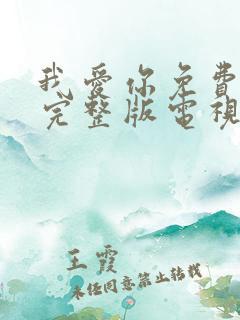 我愛你免費
完整版電視
王霞
未经同意禁止转载